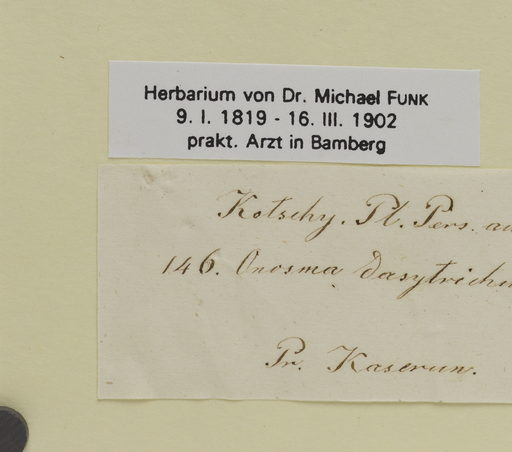 Herbarium von Dr. Michael FUNK
9. I. 1819 - 16. III. 1902
prakt. Arzt in Bamberg
Kotschy. Pl. Pers. au
146. Onosma dasytrichu
Pr. Kaserun.